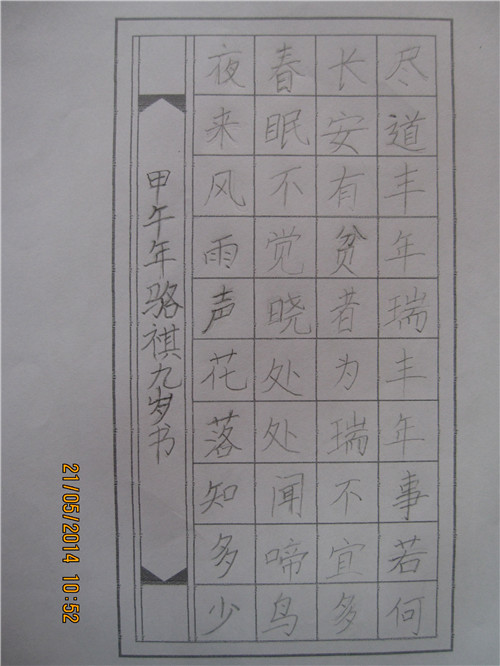 尽道丰年瑞丰年事若何
长安有贫者为瑞不宜多
春眠不觉晓处处闻啼鸟
夜来风雨声花落知多少
甲午年骆祺九岁书
21/05/2014 10:52